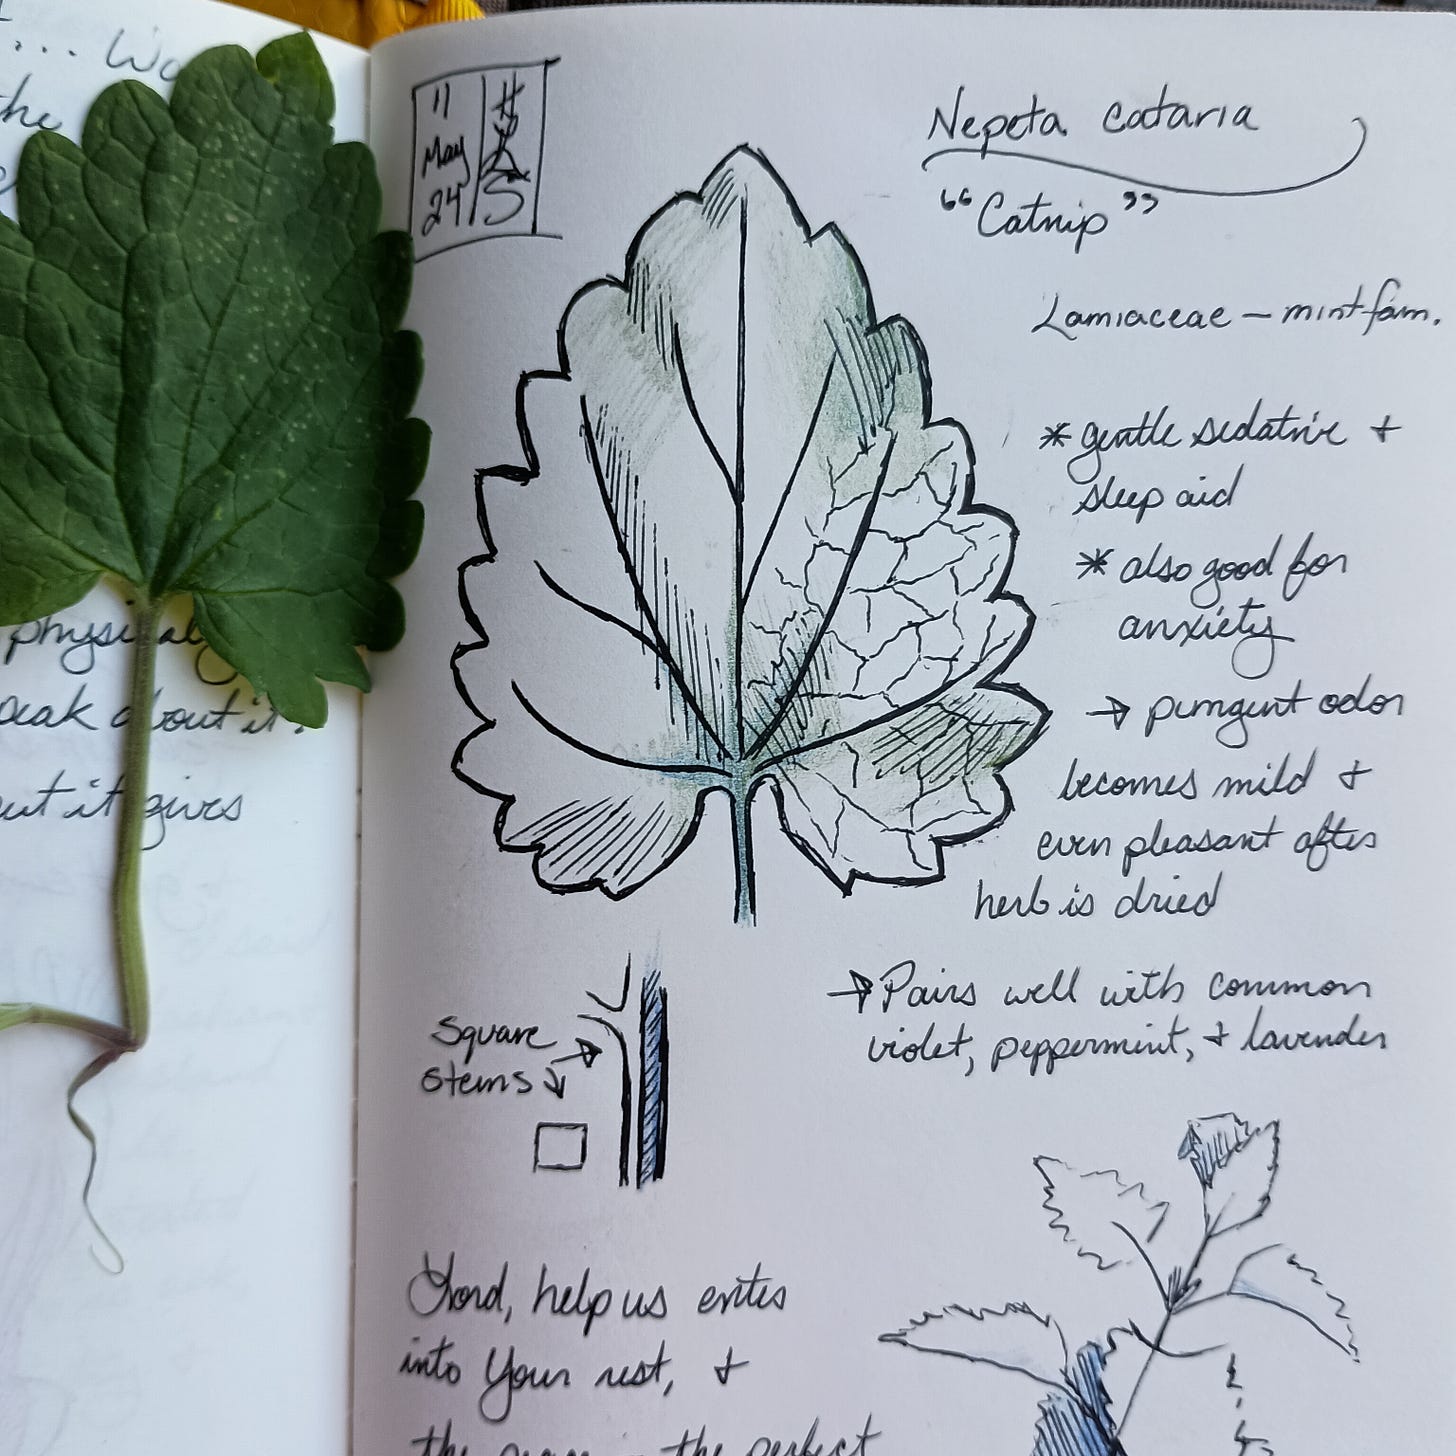 ... Wo
the
physically
peak about it.
out it gives
11
May
24
Nepeta cataria
"Catnip"
Lamiaceae — mint fam.
* gentle sedative +
sleep aid
* also good for
anxiety
→ pungent odor
becomes mild +
even pleasant after
herb is dried
→ Pairs well with common
violet, peppermint, + lavender
Square
stems
Lord, help us enter
into Your rest, +
the in the perfect